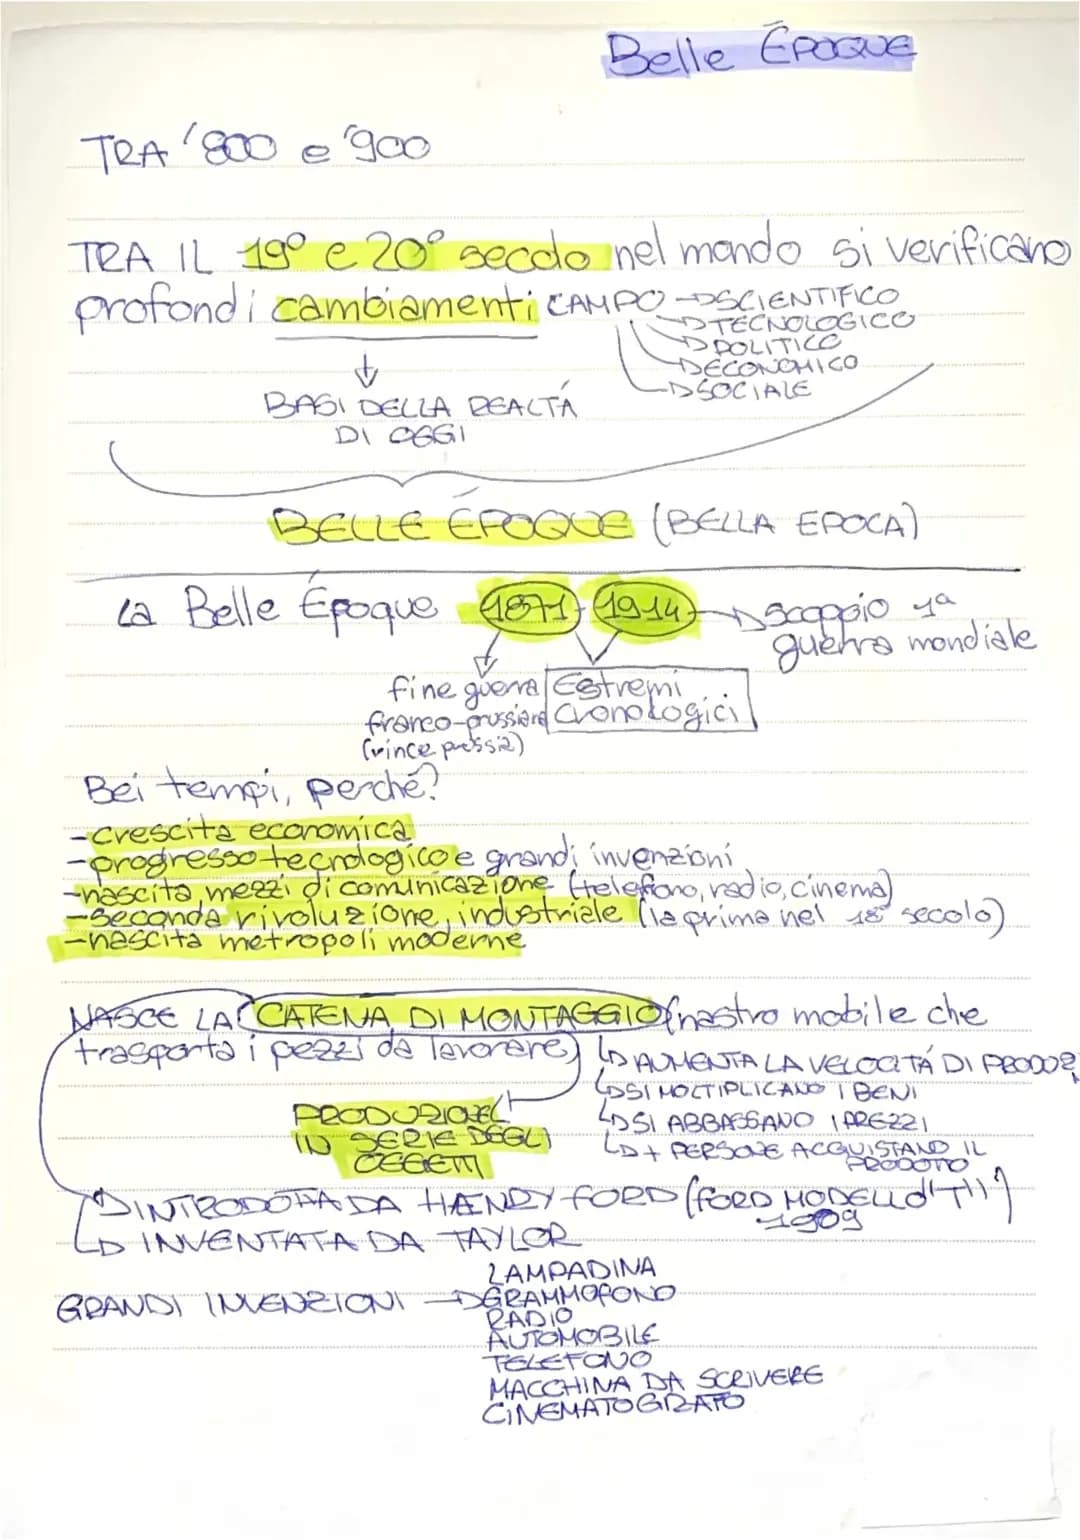 Belle ÉPOQUE
TRA '800 e '900
TRA IL 19° e 20° secolo nel mondo si verificano
profondi cambiamenti CAMPO → SCIENTIFICO
→ TECNOLOGICO
→ POLITICO
→ ECONOMICO
→ SOCIALE
↓
BASI DELLA REALTÁ
DI OGGI
BELLE ÉPOQUE (BELLA EPOCA)
La Belle Époque 1871 - 1914 → scoppio 1ª
guerra mondiale
fine guerra
franco-prussiana
(vince prussia)
Estremi
cronologici
Bei tempi, perché?
- crescita economica
- progresso tecnologico e grandi invenzioni
- nascita mezzi di comunicazione (telefono, radio, cinema)
- seconda rivoluzione industriale (la prima nel 18° secolo)
- nascita metropoli moderne
NASCE LA CATENA DI MONTAGGIO (nastro mobile che
trasporta i pezzi da lavorare)
→ AUMENTA LA VELOCITÁ DI PRODUZ.
→ SI MOLTIPLICANO I BENI
→ SI ABBASSANO I PREZZI
→ + PERSONE ACQUISTANO IL
PRODOTTO
PRODUZIONE
IN SERIE DEGLI
OGGETTI
→ INTRODOTTA DA HENRY FORD (FORD MODELLO "T")
1909
→ INVENTATA DA TAYLOR
GRANDI INVENZIONI →
LAMPADINA
GRAMMOFONO
RADIO
AUTOMOBILE
TELEFONO
MACCHINA DA SCRIVERE
CINEMATOGRAFO